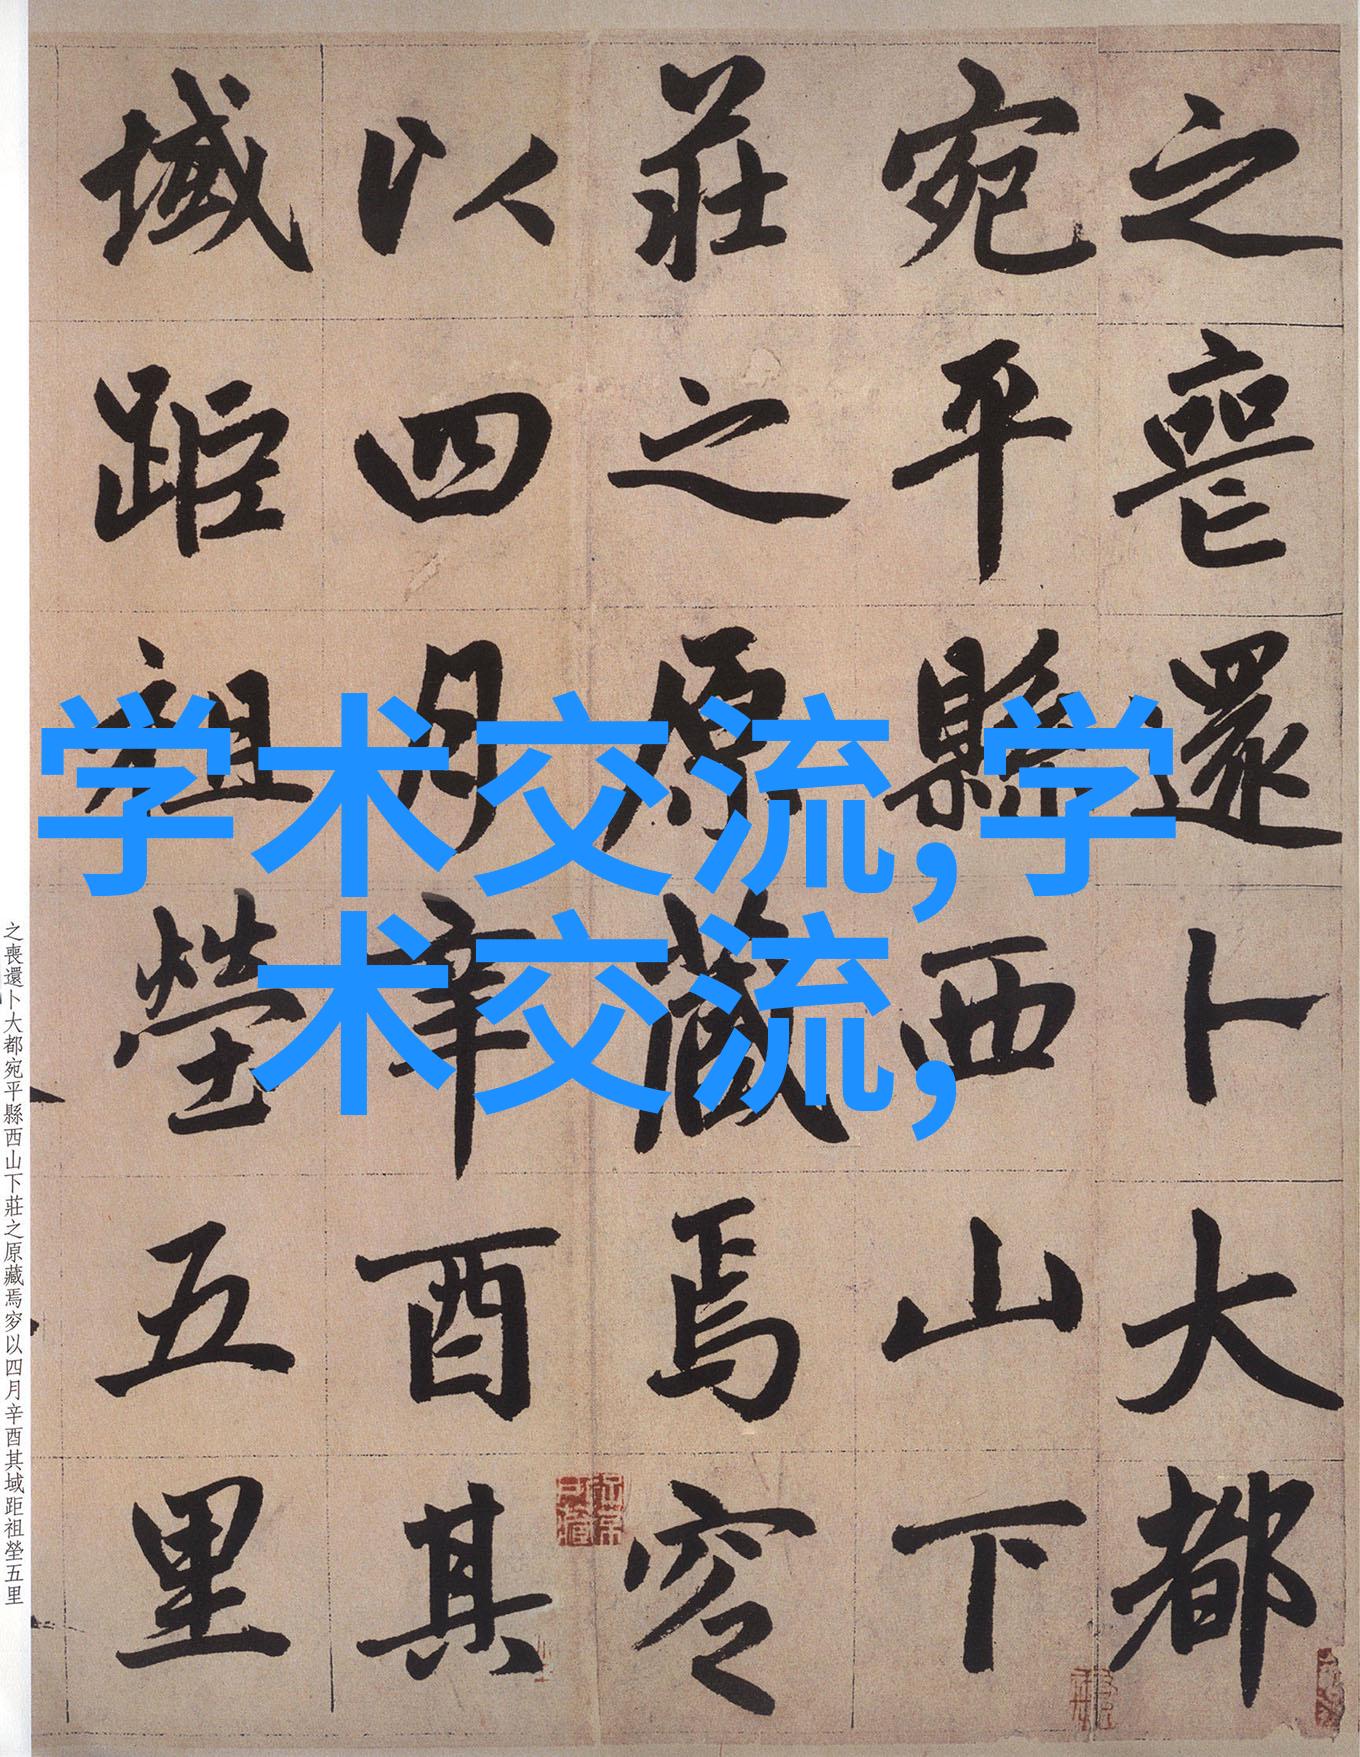 之喪還卜大都
宛平縣西山下
莊之原藏焉穸
以四月辛酉其
域距祖塋五里
学术交流,学
术交流,
之喪還卜大都宛平縣西山下莊之原藏焉穸以四月辛酉其域距祖塋五里